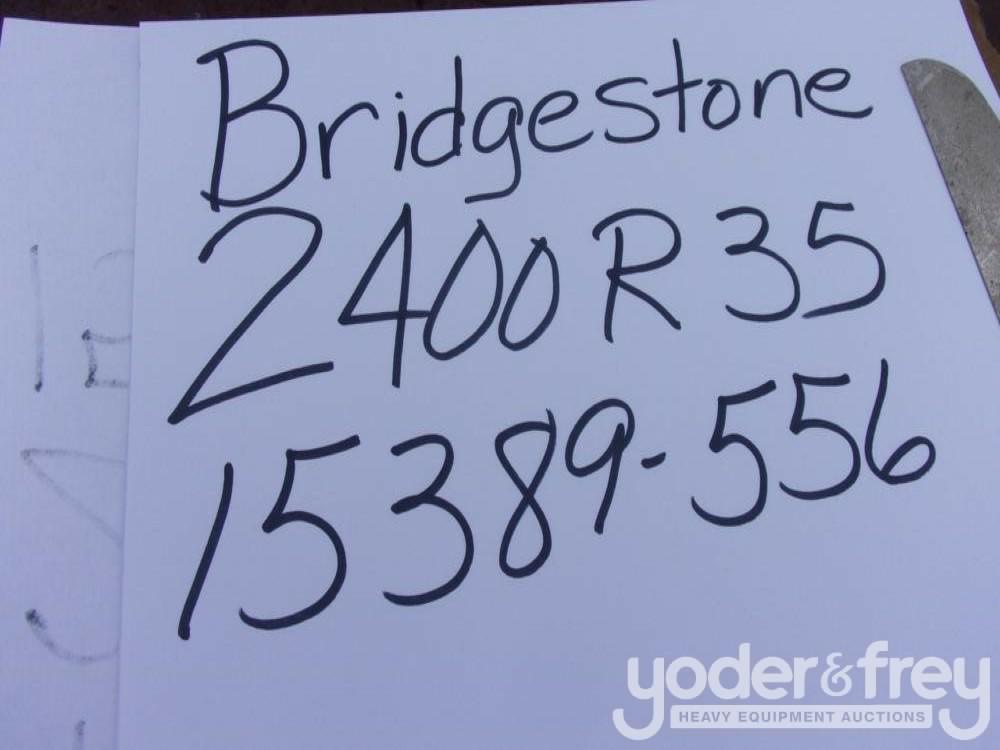 Bridgestone
2400 R 35
15389-556
yoder&frey
HEAVY EQUIPMENT AUCTIONS